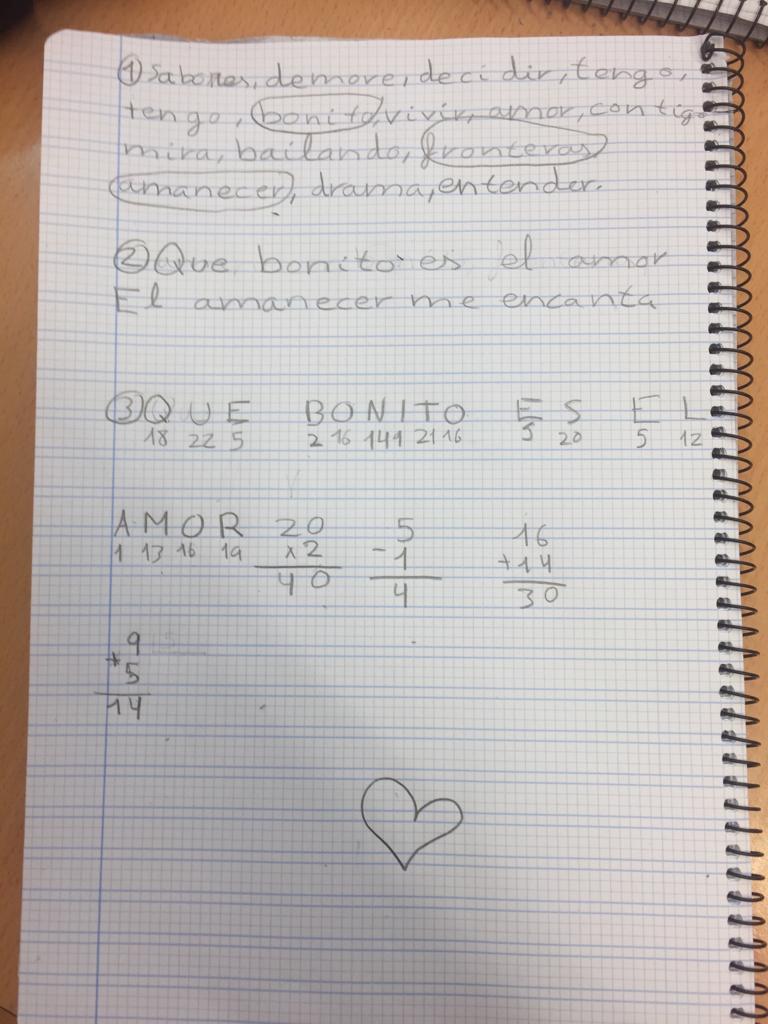 ① Sabores, demore, decidir, tengo,
tengo, bonito, vivir, amor, contigo
mira, bailando, fronteras
amanecer, drama, entender.
② Que bonito es el amor
El amanecer me encanta
③ Q U E B O N I T O E S E L
18 22 5 2 16 14 9 21 16 5 20 5 12
A M O R 20 5 16
1 13 16 19 x2 -1 +14
40 4 30
9
+5
14